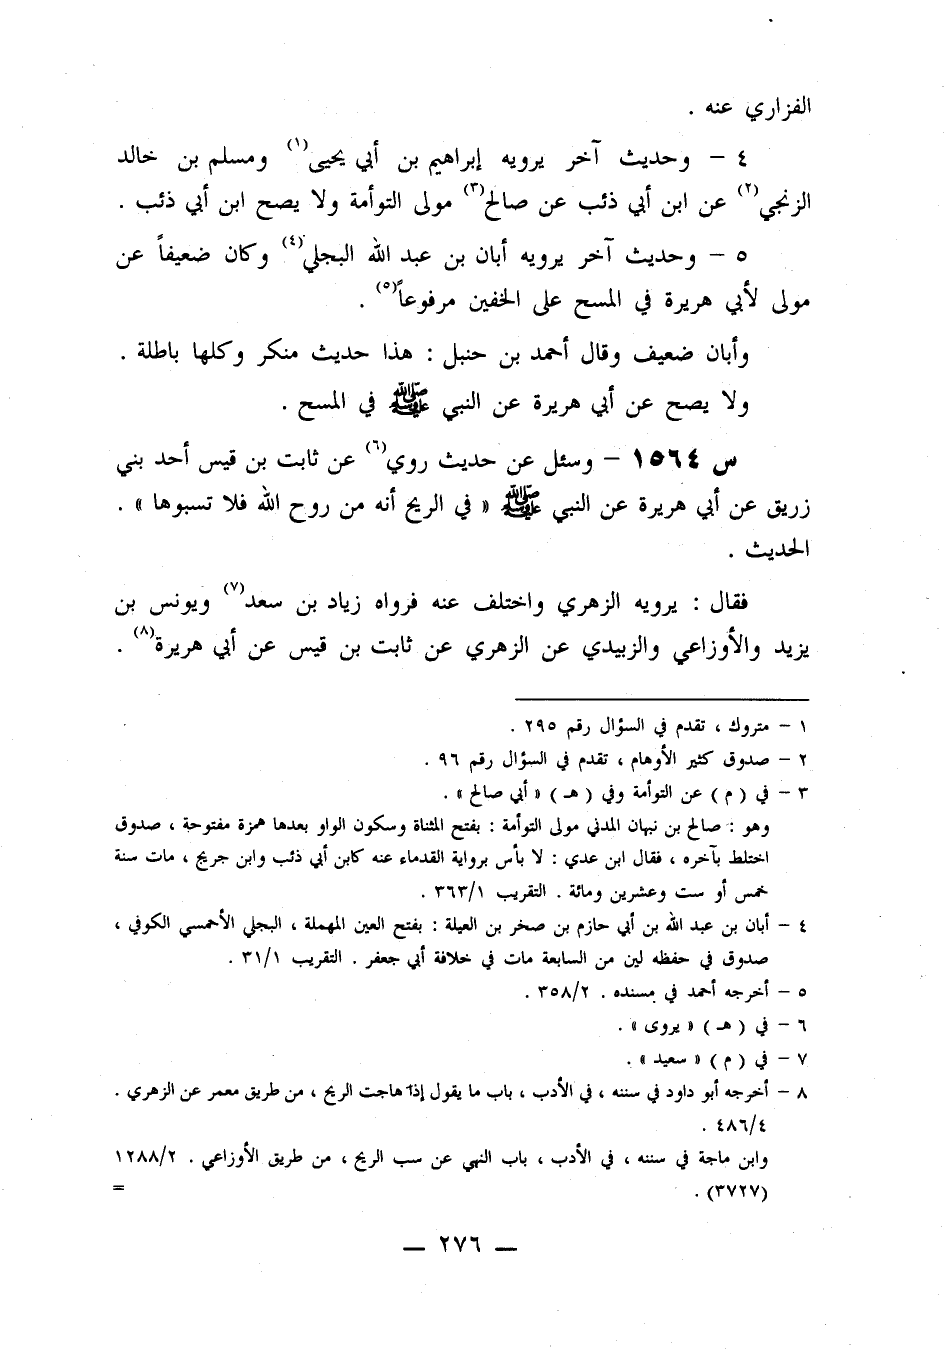 الفزاري عنه .
٤ – وحديث آخر يرويه إبراهيم بن أبي يحيى(١) ومسلم بن خالد
الزنجي(٢) عن ابن أبي ذئب عن صالح(٣) مولى التوأمة ولا يصح ابن أبي ذئب .
٥ – وحديث آخر يرويه أبان بن عبد الله البجلي(٤) وكان ضعيفاً عن
مولى لأبي هريرة في المسح على الخفين مرفوعاً(٥) .
وأبان ضعيف وقال أحمد بن حنبل : هذا حديث منكر وكلها باطلة .
ولا يصح عن أبي هريرة عن النبي ﷺ في المسح .
س ١٥٦٤ – وسئل عن حديث روي(٦) عن ثابت بن قيس أحد بني
زريق عن أبي هريرة عن النبي ﷺ « في الريح أنه من روح الله فلا تسبوها » .
الحديث .
فقال : يرويه الزهري واختلف عنه فرواه زياد بن سعد(٧) ويونس بن
يزيد والأوزاعي والزبيدي عن الزهري عن ثابت بن قيس عن أبي هريرة(٨) .
١ – متروك ، تقدم في السؤال رقم ٢٩٥ .
٢ – صدوق كثير الأوهام ، تقدم في السؤال رقم ٩٦ .
٣ – في ( م ) عن التوأمة وفي ( هـ ) « أبي صالح » .
وهو : صالح بن نبهان المدني مولى التوأمة : بفتح المثناة وسكون الواو بعدها همزة مفتوحة ، صدوق
اختلط بآخره ، فقال ابن عدي : لا بأس برواية القدماء عنه كابن أبي ذئب وابن جريج ، مات سنة
خمس أو ست وعشرين ومائة . التقريب ٣٦٣/١ .
٤ – أبان بن عبد الله بن أبي حازم بن صخر بن العيلة : بفتح العين المهملة ، البجلي الأحمسي الكوفي ،
صدوق في حفظه لين من السابعة مات في خلافة أبي جعفر . التقريب ٣١/١ .
٥ – أخرجه أحمد في مسنده . ٣٥٨/٢ .
٦ – في ( هـ ) « يروى » .
٧ – في ( م ) « سعيد » .
٨ – أخرجه أبو داود في سننه ، في الأدب ، باب ما يقول إذا هاجت الريح ، من طريق معمر عن الزهري .
٤٨٦/٤ .
وابن ماجة في سننه ، في الأدب ، باب النهي عن سب الريح ، من طريق الأوزاعي . ١٢٨٨/٢
(٣٧٢٧) . =
— ٢٧٦ —